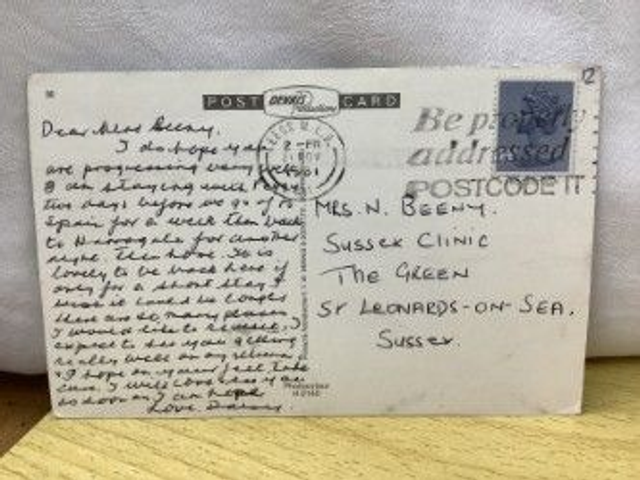 12
POST DENNIS Productions CARD
Dear Mrs Beeny,
I do hope you
are progressing very well
I am staying with
two days before we go to
Spain for a week then back
to Harrogate for another
night then home. It is
lovely to be back here if
only for a short stay I
wish it could be longer
there are so many places
I would like to I
expect to see you getting
really well on my return
I hope you
I will see you
as soon as I can
Love
LEEDS
2 - PM
NOV
Be properly
addressed
POSTCODE IT
MRS. N. BEENY.
SUSSEX CLINIC
THE GREEN
ST LEONARDS-ON-SEA.
SUSSEX.
Photocolour